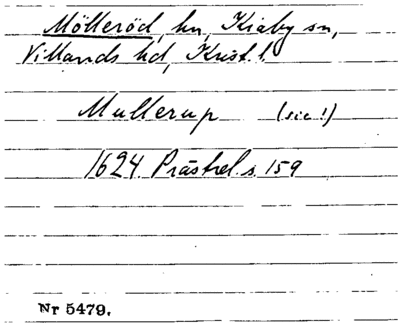 Mölleröd, hn, Kiaby sn,
Villands hd, Krist. l.
Mullerup (sic!)
1624. Prästrel. s. 159
Nr 5479.